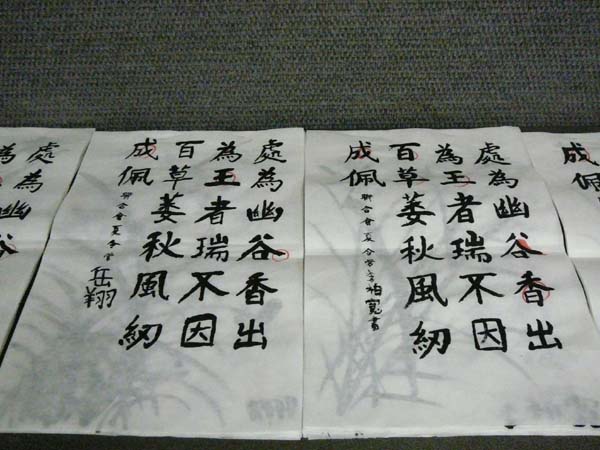 成佩
處為幽谷香出
為王者瑞不因
百草萎秋風紉
成佩
聯合會夏令營李柏寬書
處為幽谷香出
為王者瑞不因
百草萎秋風紉
成佩
聯合會夏令營
岳翔
處為幽谷
為